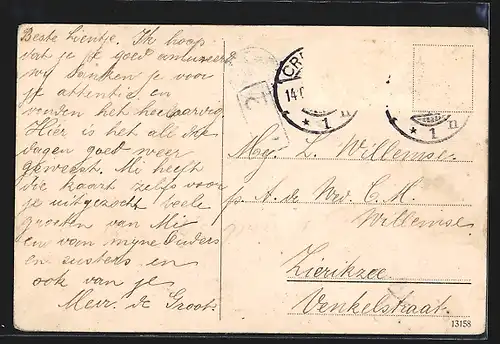 Beste Lientje. Ik hoop
dat je je goed amuseerd
wij danken je voor
je attentie en
vonden het heel aardig
Hier is het alle
dagen goed weer
geweest. Mi heeft
die kaart zelfs voor
je uitgezocht Veele
groeten van Mi
en van myne Ouders
en zusters en
ook van je
Mevr. de Groot
CR
14.
* 1 n
* 1 n
Mej. L. Willemse.
p. A. de Wed. C. M.
Willemse
Zierikzee.
Venkelstraat.
13158